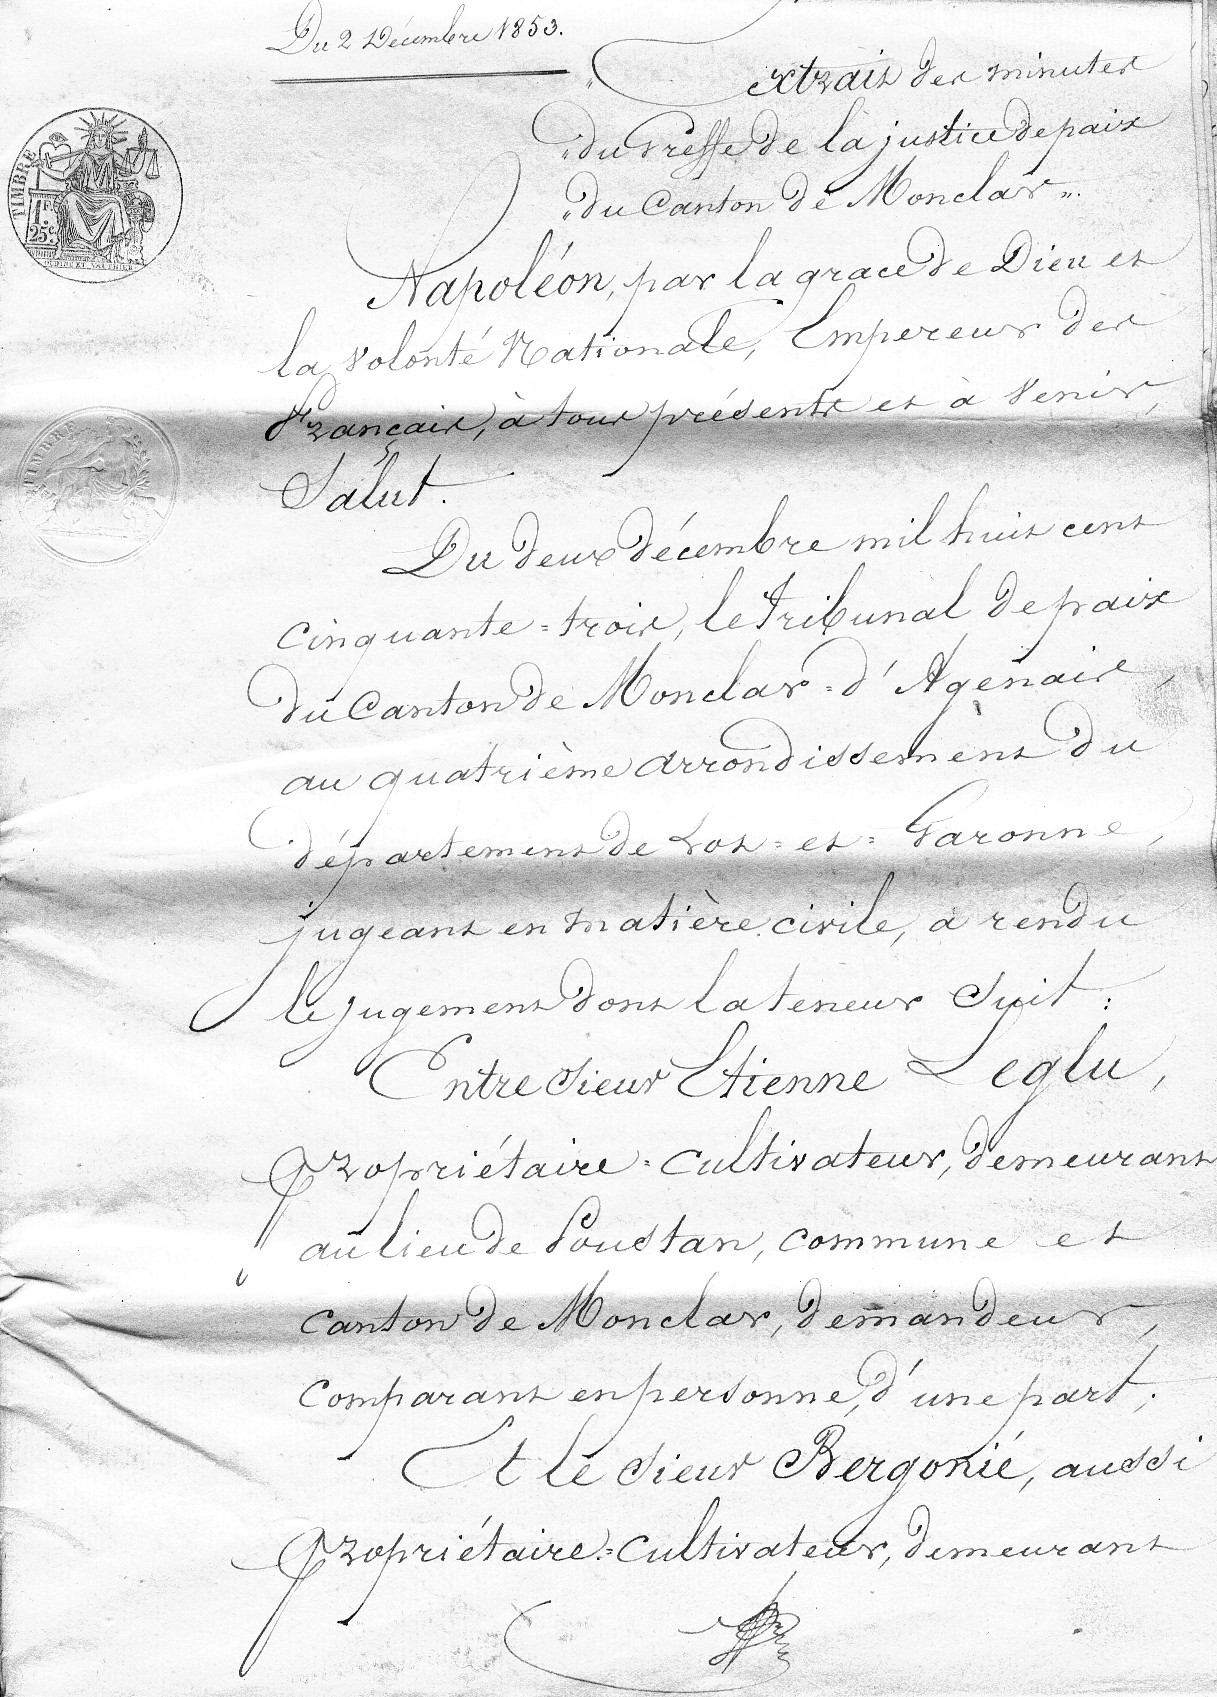 Du 2 Décembre 1853.
Extrait des minutes
"du Greffe de la justice de paix
"du Canton de Monclar".
TIMBRE
1 F.
25 c.
Napoléon, par la grace de Dieu et
la volonté Nationale, Empereur des
Français, à tous présents et à venir,
Salut.
TIMBRE
Du deux décembre mil huit cent
cinquante=trois, le tribunal de paix
du Canton de Monclar=d'Agenais,
au quatrième arrondissement du
département de Lot=et=Garonne,
jugeant en matière civile, a rendu
le jugement dont la teneur suit :
Entre Sieur Etienne Leglu,
propriétaire=cultivateur, demeurant
au lieu de Poustan, commune et
canton de Monclar, demandeur,
comparant en personne, d'une part;
Et le Sieur Bergonié, aussi
propriétaire=cultivateur, demeurant